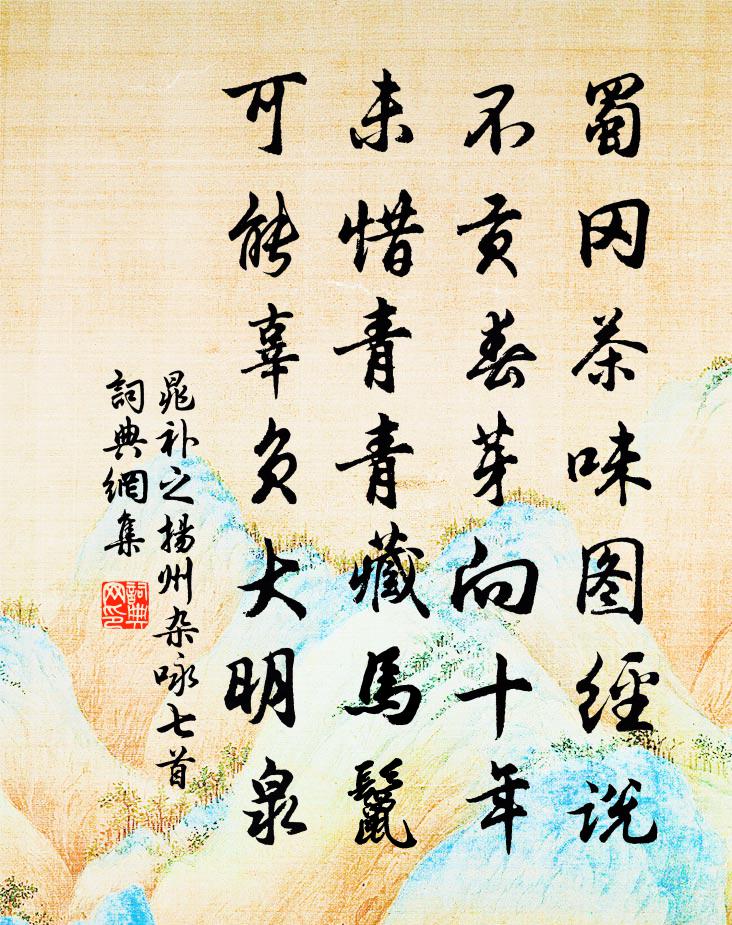 蜀冈茶味图经说
不贡春芽向十年
未惜青青藏馬鬣
可能辜负大明泉
晁补之揚州杂咏七首
詞典網集
詞典
网印